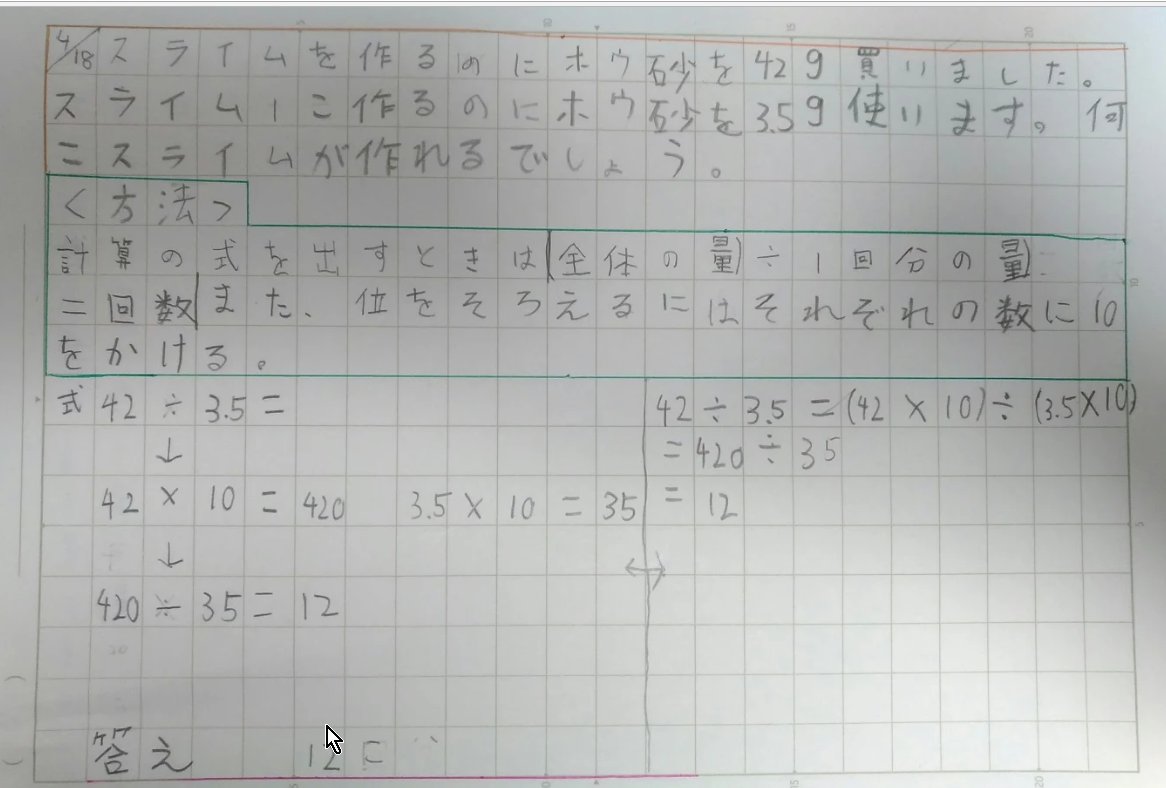 4/18 スライムを作るのにホウ砂を42g買いました。
スライム1こ作るのにホウ砂を3.5g使います。何
こスライムが作れるでしょう。
<方法>
計算の式を出すときは(全体の量)÷1回分の量)
=回数)また、位をそろえるにはそれぞれの数に10
をかける。
式 42÷3.5=
↓
42×10=420 3.5×10=35
↓
420÷35=12
42÷3.5=(42×10)÷(3.5×10)
=420÷35
=12
↔
答え 12こ